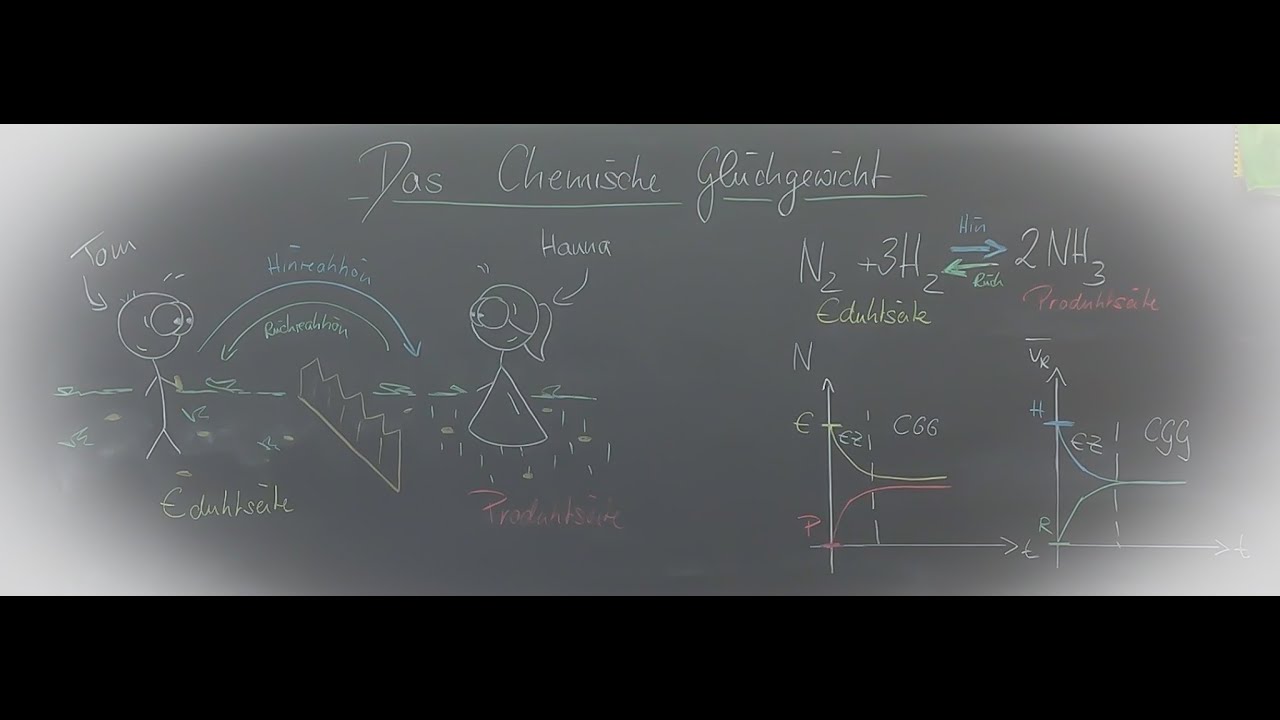 Das Chemische Gleichgewicht
Tom
Hinreaktion
Rückreaktion
Hanna
Eduktseite
Produktseite
N₂ + 3H₂ ⇌ 2NH₃
Hin
Rück
Eduktseite
Produktseite
N
E
EZ
CGG
P
t
v̅R
H
EZ
CGG
R
t